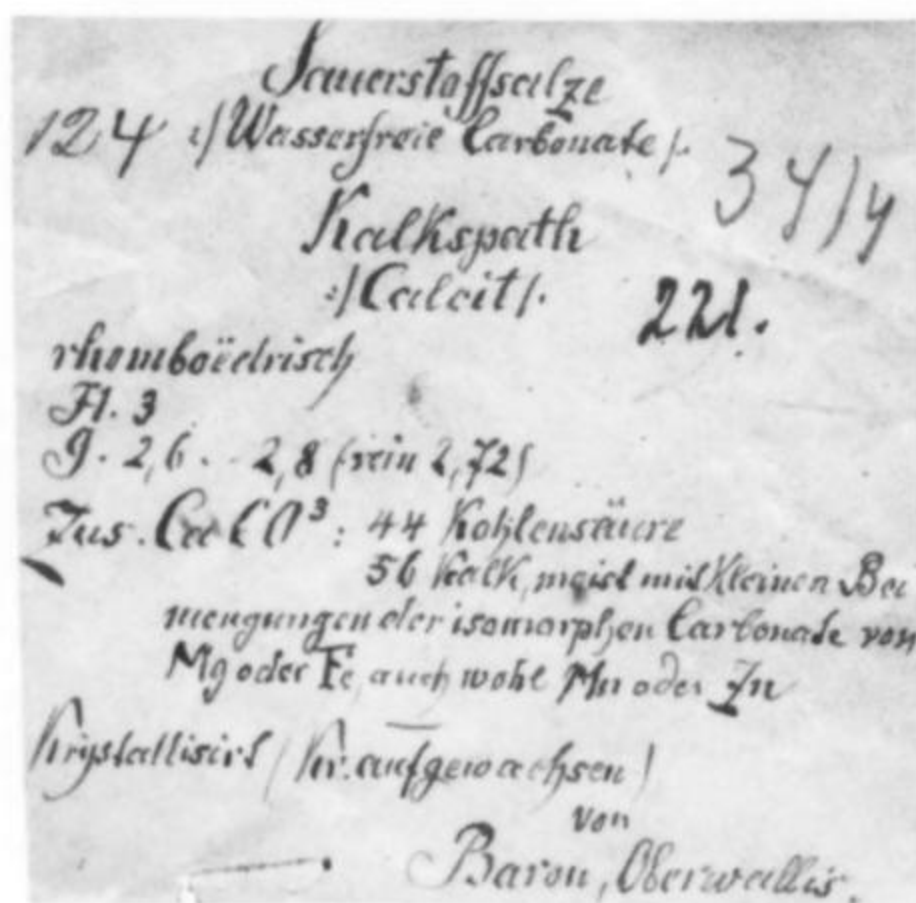 Sauerstoffsalze
124 :/Wasserfreie Carbonate/. 34)4
Kalkspath
:/Calcit/. 221.
rhomboëdrisch
H. 3
G. 2,6 . - 2,8 (rein 2,72)
Zus. CaCO³ : 44 Kohlensäure
56 Kalk, meist mit kleinen Bei
mengungen der isomorphen Carbonate von
Mg oder Fe, auch wohl Mn oder Zn
Krystallisirt (Kr. aufgewachsen)
von
Baron, Oberwallis.